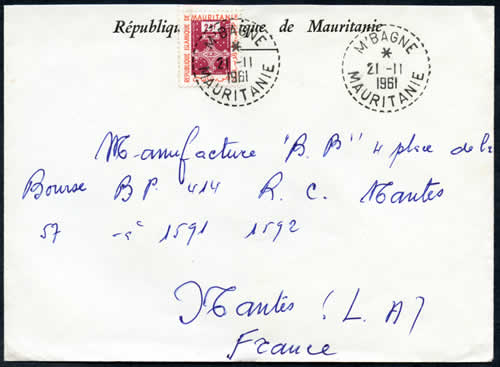 Républiq ique de Mauritanie
RÉPUBLIQUE ISLAMIQUE DE MAURITANIE
M'BAGNE
21-11
1961
MAURITANIE
M'BAGNE
21-11
1961
MAURITANIE
Manufacture "B.B" 4 place de la
Bourse B P. 414 R. C. Nantes
57 -a 1591 1592
Nantes (L.A)
France